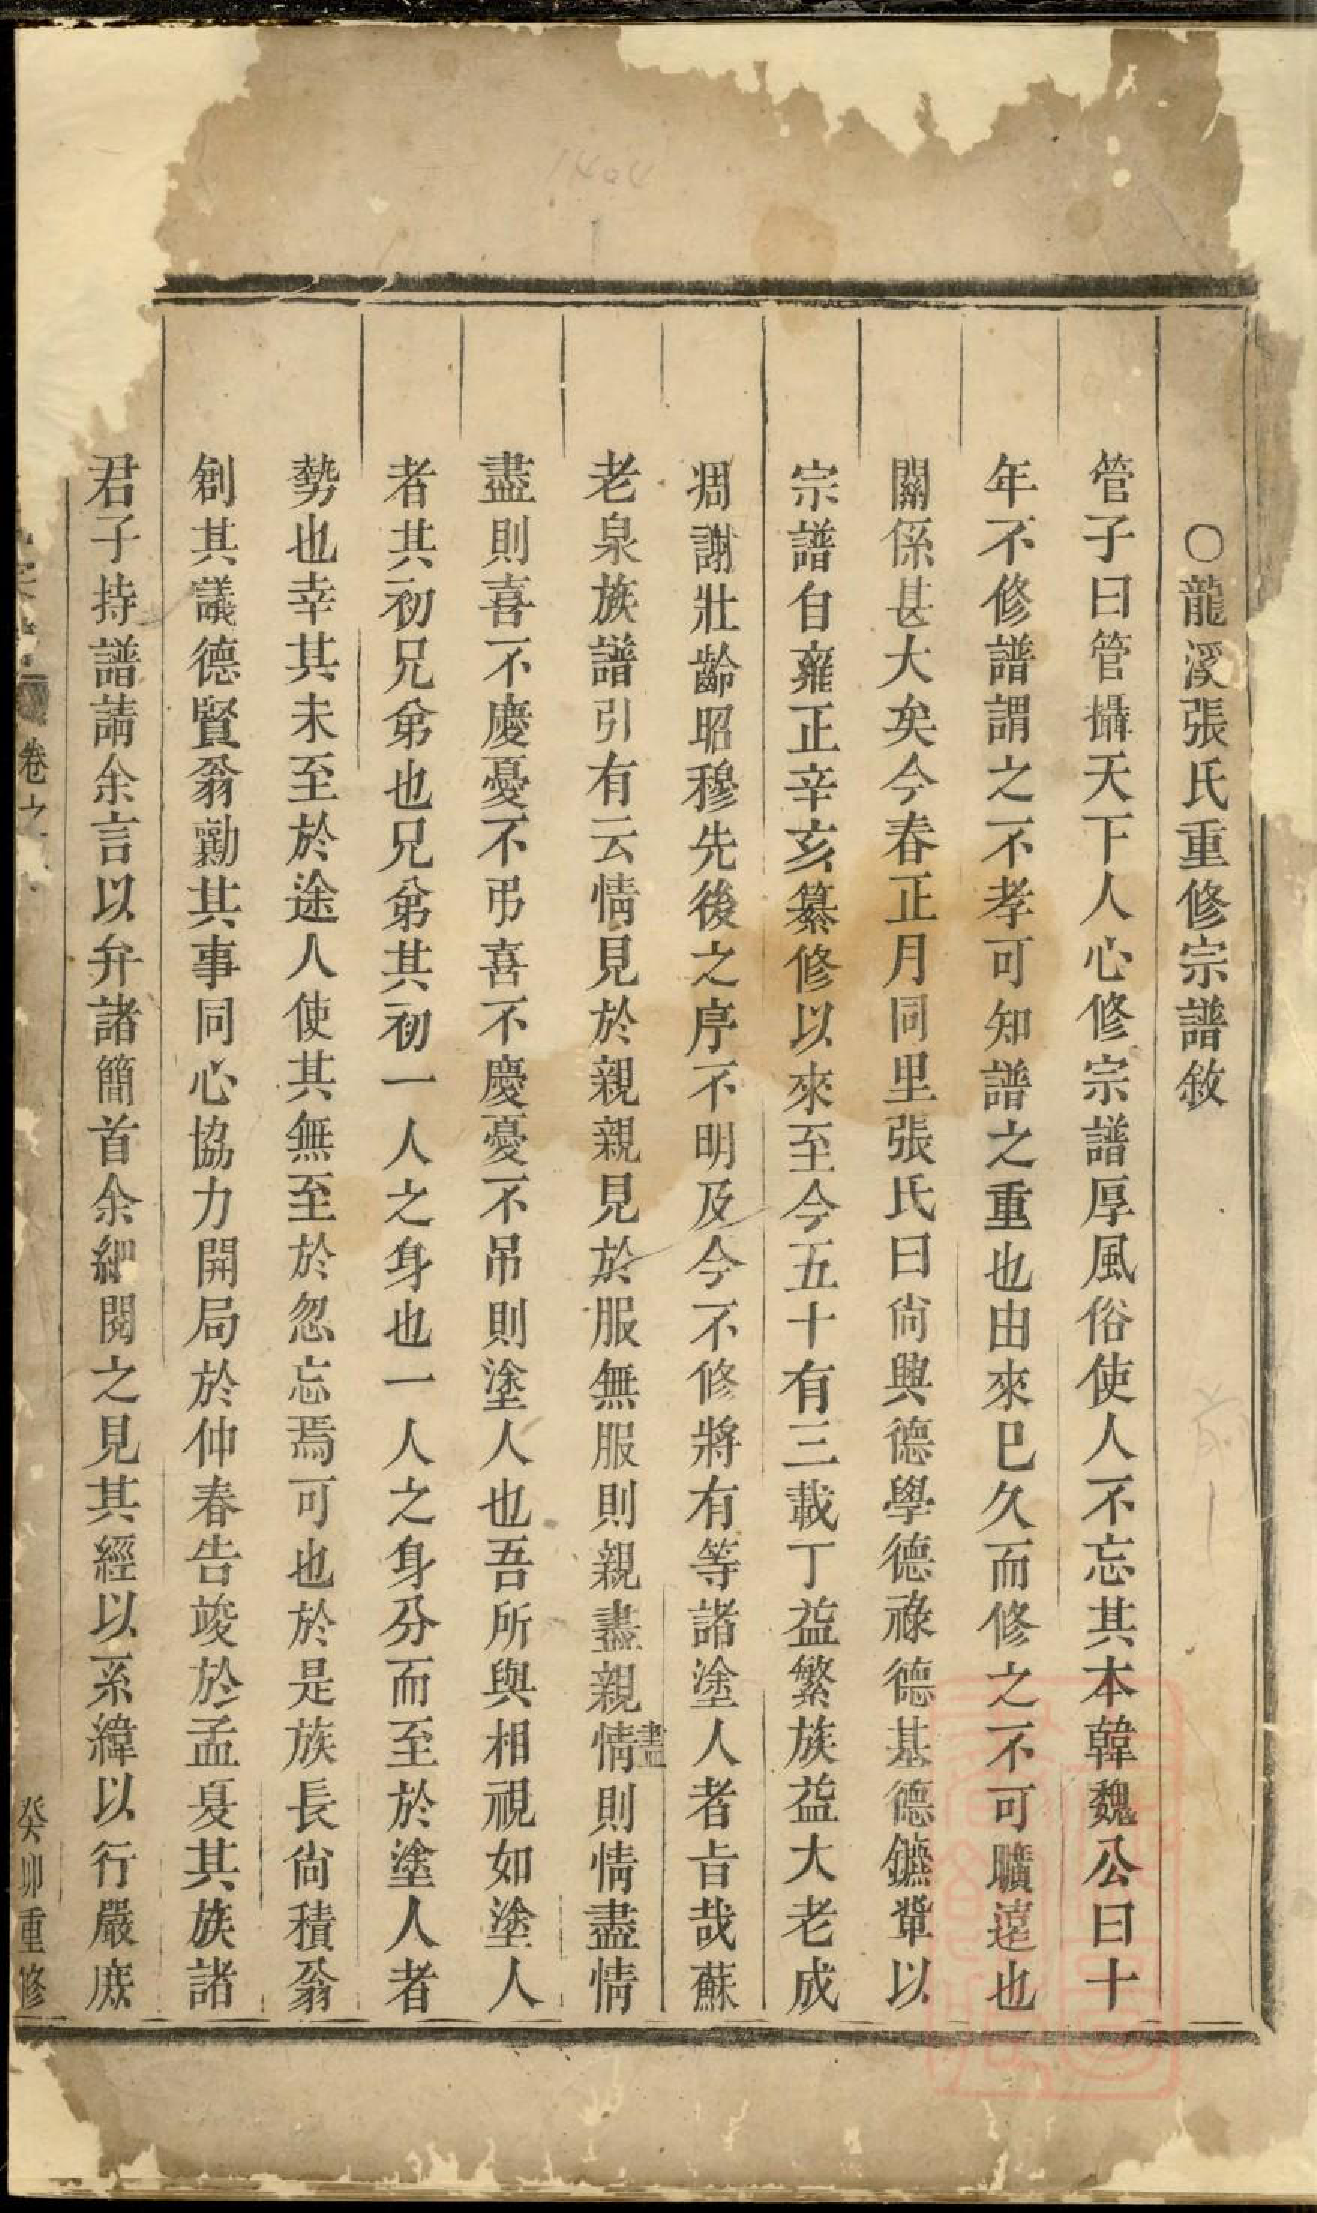 ○龍溪張氏重修宗譜敘
管子曰管攝天下人心修宗譜厚風俗使人不忘其本韓魏公曰十
年不修譜謂之不孝可知譜之重也由來已久而修之不可曠遠也
關係甚大矣今春正月同里張氏曰尙與德學德祿德基德鑣軰以
宗譜自雍正辛亥纂修以來至今五十有三載丁益繁族益大老成
凋謝壯齡昭穆先後之序不明及今不修將有等諸塗人者旨哉蘇
老泉族譜引有云情見於親親見於服無服則親盡親盡情則情盡情
盡則喜不慶憂不弔喜不慶憂不吊則塗人也吾所與相視如塗人
者其初兄弟也兄弟其初一人之身也一人之身分而至於塗人者
勢也幸其未至於途人使其無至於忽忘焉可也於是族長尙積翁
創其議德賢翁勷其事同心協力開局於仲春告竣於孟夏其族諸
君子持譜請余言以弁諸簡首余細閱之見其經以系緯以行嚴庶
卷之
癸卯重修
1404